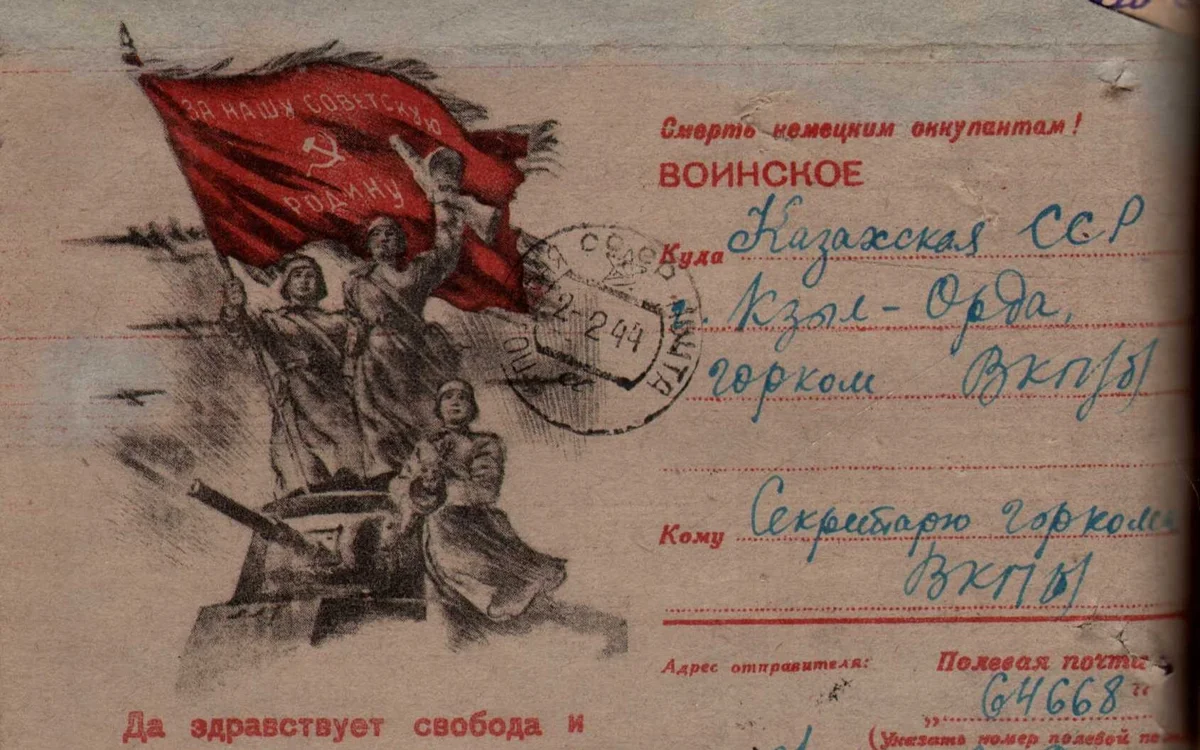 ЗА НАШУ СОВЕТСКУЮ
РОДИНУ
Смерть немецким оккупантам!
ВОИНСКОЕ
Куда Казахская ССР
г. Кзыл-Орда,
горком ВКП/б/
Кому Секритарю горкома
ВКП/б/
ПОЛЕВАЯ ПОЧТА
2-2 44
Адрес отправителя: Полевая почта
„64668“
(Указать номер полевой
Да здравствует свобода и